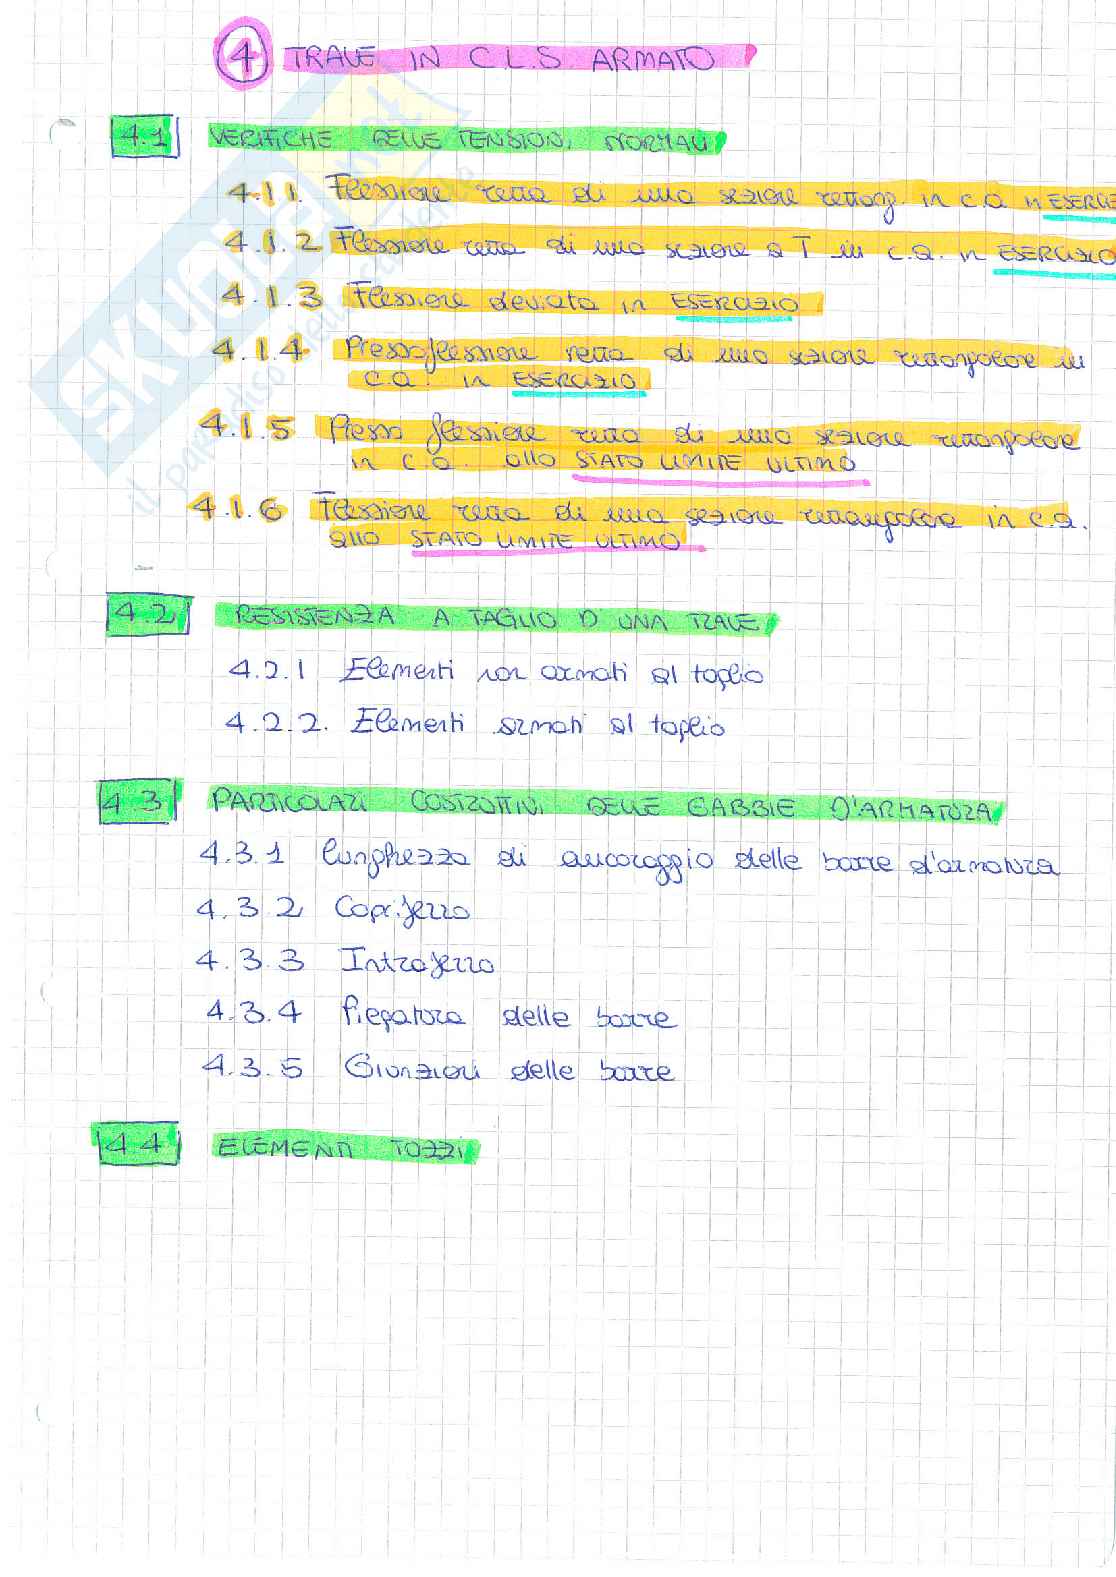 4 TRAVE IN C.L.S ARMATO
4.1 VERIFICHE DELLE TENSIONI NORMALI
4.1.1. Flessione retta di una sezione rettang. in c.a. in ESERCI
4.1.2 Flessione retta di una sezione a T in c.a. in ESERCIZIO
4.1.3 Flessione deviata in ESERCIZIO
4.1.4 Pressoflessione retta di una sezione rettangolare in
c.a. in ESERCIZIO
4.1.5 Presso flessione retta di una sezione rettangolare
in c.a. allo STATO LIMITE ULTIMO
4.1.6 Flessione retta di una sezione rettangolare in c.a.
allo STATO LIMITE ULTIMO
4.2 RESISTENZA A TAGLIO D'UNA TRAVE
4.2.1 Elementi non armati al taglio
4.2.2. Elementi armati al taglio
4.3 PARTICOLARI COSTRUTTIVI DELLE GABBIE D'ARMATURA
4.3.1 Lunghezza di ancoraggio delle barre d'armatura
4.3.2 Copriferro
4.3.3 Intraferro
4.3.4 Piegatura delle barre
4.3.5 Giunzioni delle barre
4.4 ELEMENTI TOZZI
SKUOLA.net
il paradiso dello studente